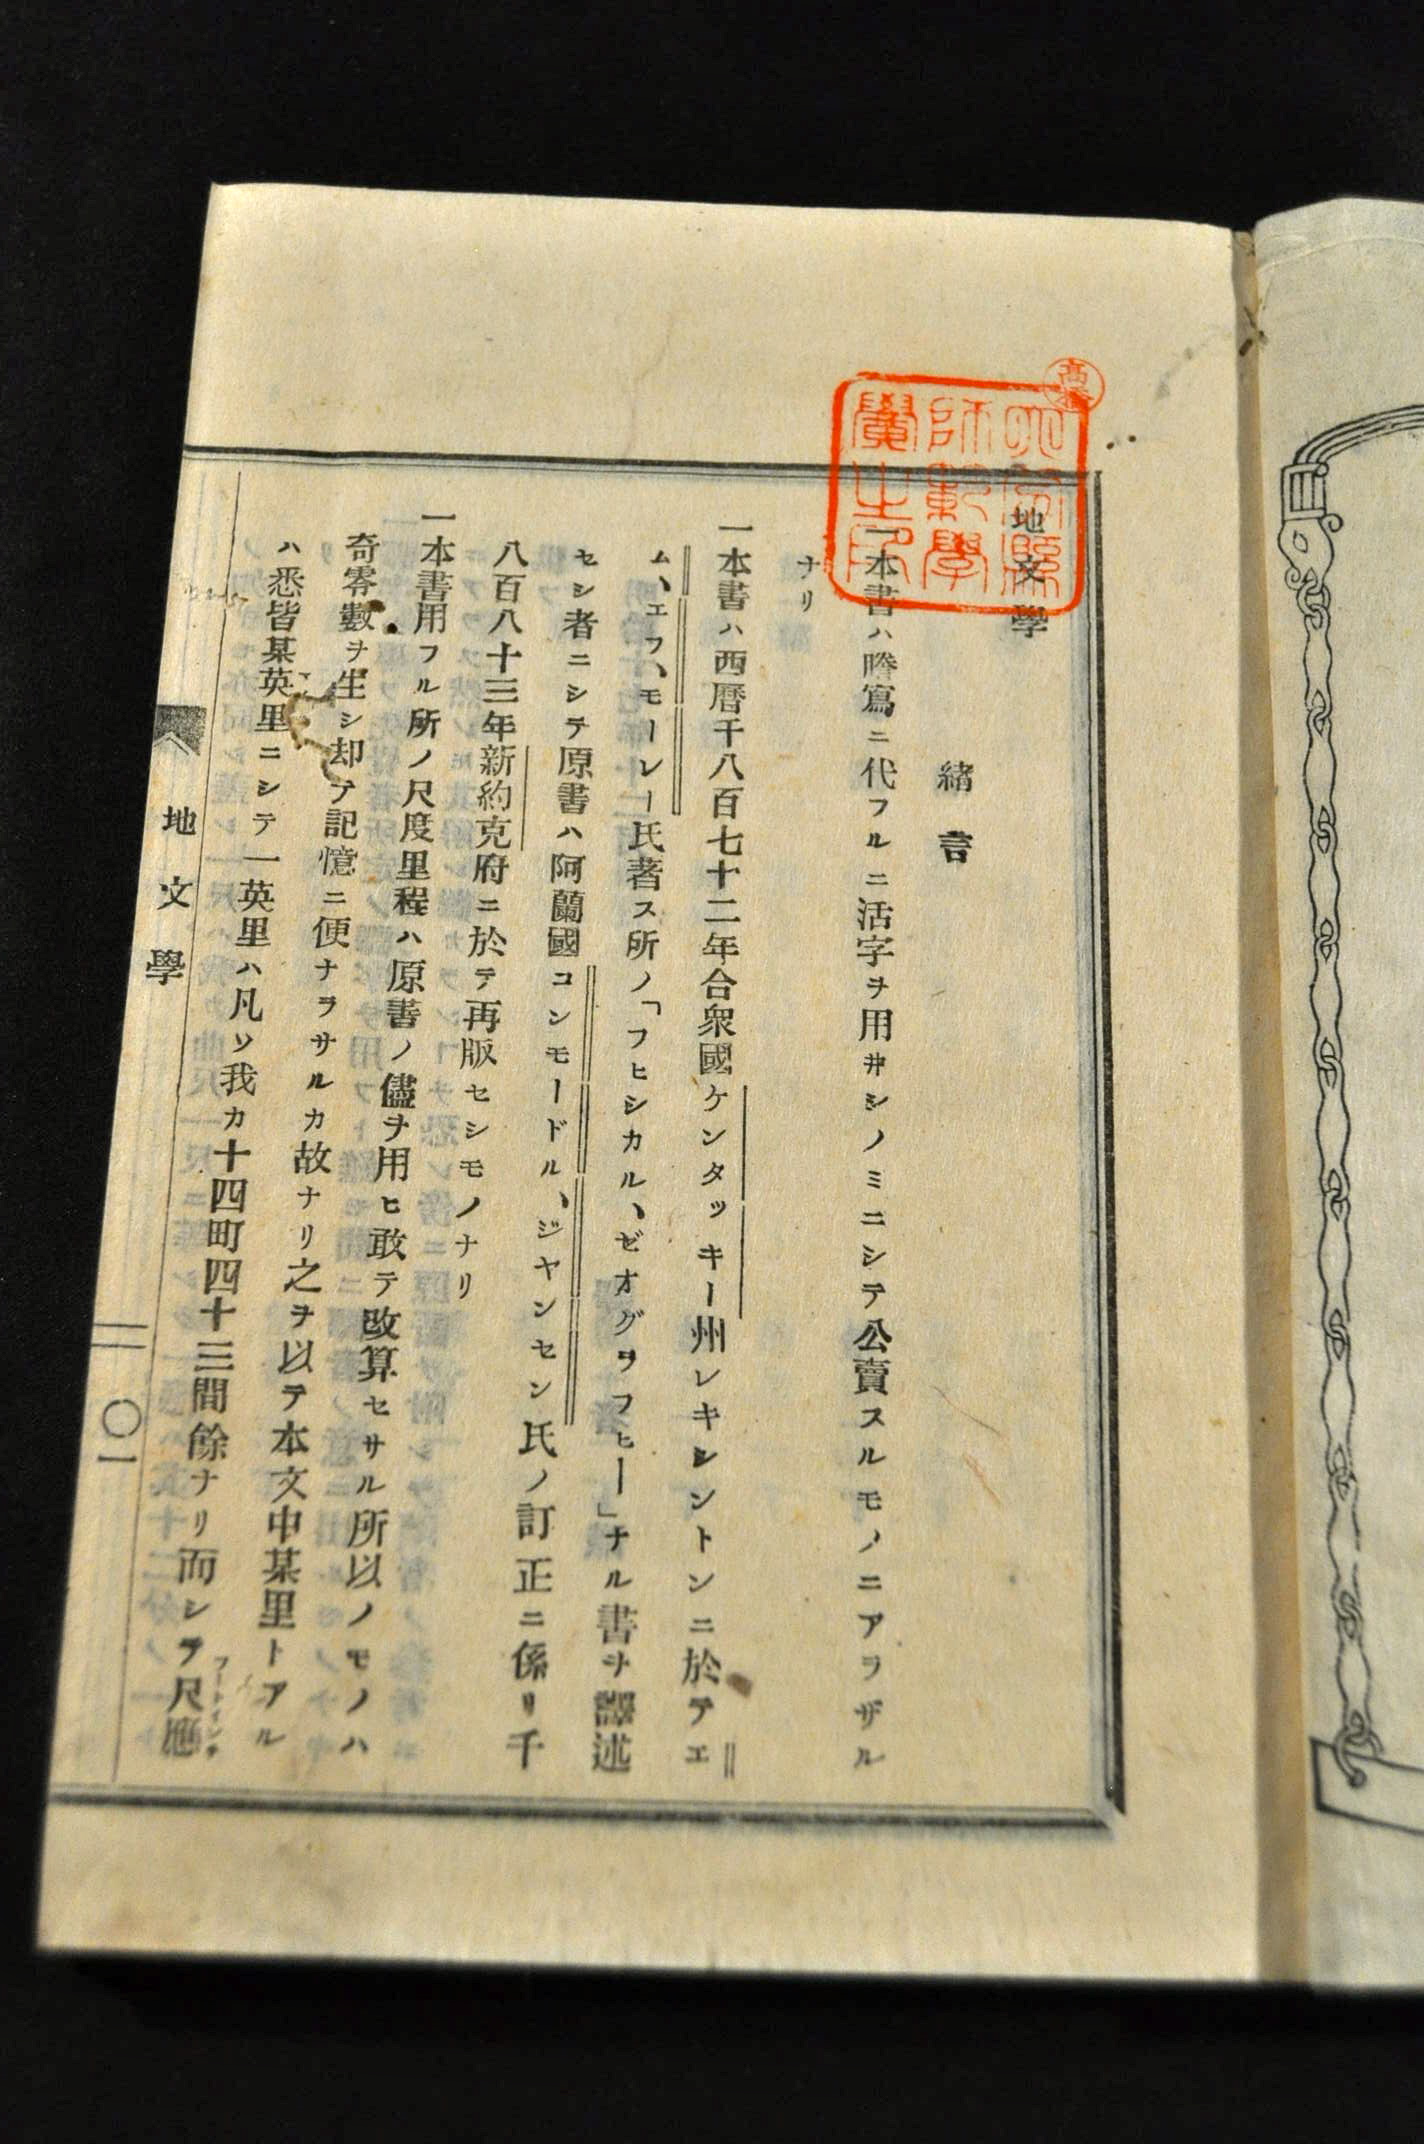 地文學
緒言
一本書ハ謄寫ニ代フルニ活字ヲ用井シノミニシテ公賣スルモノニアラザル
ナリ
一本書ハ西曆千八百七十二年合衆國ケンタッキー州レキシントンニ於テエ
ム、エフ、モーレー氏著ス所ノ「フヒシカル、ゼオグラフヒー」ナル書ヲ譯述
セシ者ニシテ原書ハ阿蘭國コンモードル、ジヤンセン氏ノ訂正ニ係リ千
八百八十三年新約克府ニ於テ再版セシモノナリ
一本書用フル所ノ尺度里程ハ原書ノ儘ヲ用ヒ敢テ改算セサル所以ノモノハ
奇零數ヲ生シ却テ記憶ニ便ナラサルカ故ナリ之ヲ以テ本文中某里トアル
ハ悉皆某英里ニシテ一英里ハ凡ソ我カ十四町四十三間餘ナリ而シテ尺
フートインチ
地文學
〇一
高
師範學